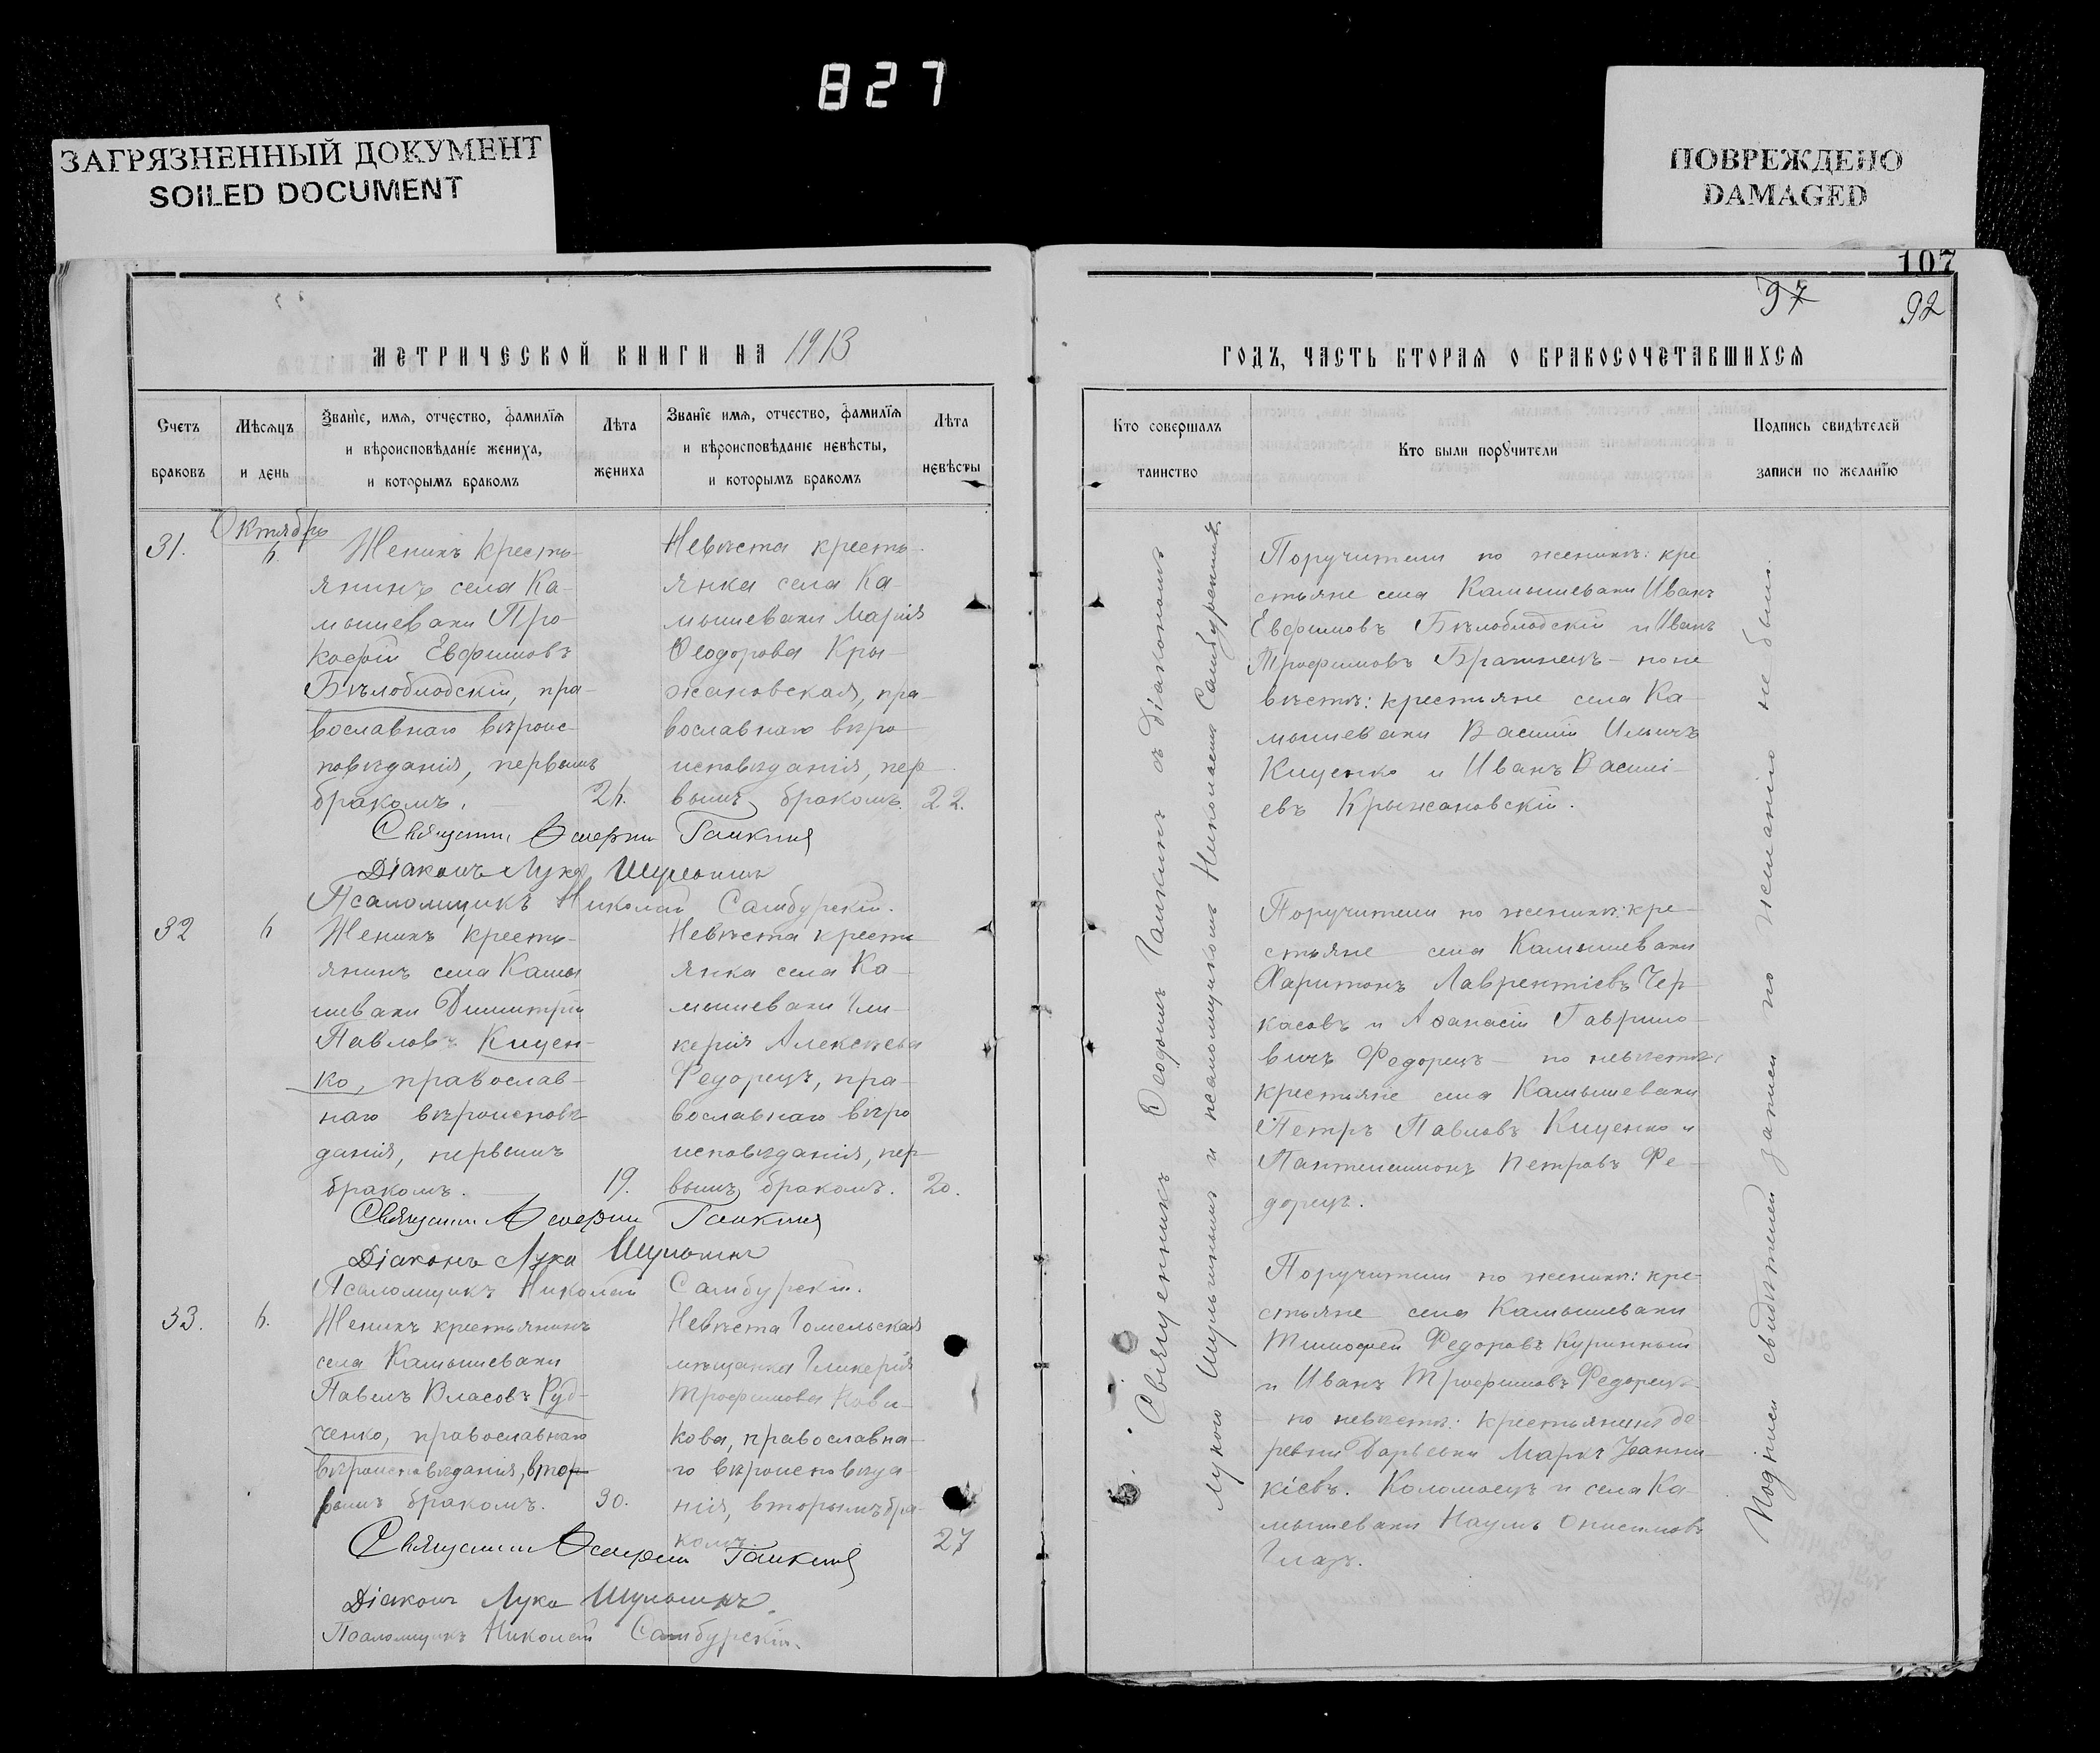 827
ЗАГРЯЗНЕННЫЙ ДОКУМЕНТ
SOILED DOCUMENT
ПОВРЕЖДЕНО
DAMAGED
107
97
92
МЕТРИЧЕСКОЙ КНИГИ НА 1913
Счетъ
браковъ
Мѣсяцъ
и день
Званіе, имя, отчество, фамилія
и вѣроисповѣданіе жениха,
и которымъ бракомъ
Лѣта
жениха
Званіе имя, отчество, фамилія
и вѣроисповѣданіе невѣсты,
и которымъ бракомъ
Лѣта
невѣсты
31.
Октябрь
Женихъ кресть-
янинъ села Ка-
мышевахи Про-
кофій Евфимовъ
Бѣлоблодскій, пра-
вославнаго вѣроис-
повѣданія, первымъ
бракомъ.
Невѣста кресть-
янка села Ка-
мышевахи Марія
Ѳеодорова Кры-
жановская, пра-
вославнаго вѣро
исповѣданія, пер
вымъ бракомъ. 22.
Діаконъ Лука Шульминъ
Псаломщикъ Николай Самбурскій.
32
Женихъ кресть-
янинъ села Камы
шевахи Димитрій
Павловъ Кицен-
ко, православ-
наго вѣроисповѣ
данія, первымъ
бракомъ. 19.
Невѣста кресть
янка села Ка-
мышевахи Гли-
керія Алексѣева
Федорецъ, пра-
вославнаго вѣро
исповѣданія, пер-
вымъ бракомъ. 20.
Діаконъ Лука Шульминъ
Псаломщикъ Николай Самбурскій.
33.
Женихъ крестьянинъ
села Камышевахи
Павелъ Власовъ Руд-
ченко, православнаго
вѣроисповѣданія, втор
ымъ бракомъ. 30.
Невѣста Гомельская
мѣщанка Гликерія
Трофимова Нови-
кова, православна-
го вѣроисповѣда-
нія, вторымъ бра-
комъ. 27
Діаконъ Лука Шульминъ.
Псаломщикъ Николай Самбурскій.
ГОДЪ, ЧАСТЬ ВТОРАЯ О БРАКОСОЧЕТАВШИХСЯ
Кто совершалъ
таинство
Кто были поручители
Подпись свидѣтелей
записи по желанію
Священникъ Галкинъ съ Діакономъ
Лукою Шульминымъ и псаломщикомъ Николаемъ Самбурскимъ.
Поручители по женихѣ: кре
стьяне села Камышевахи Иванъ
Евфимовъ Бѣлоблодскій и Иванъ
Трофимовъ Братнецъ – по не
вѣстѣ: крестьяне села Ка
мышевахи Василій Ильичъ
Киценко и Иванъ Васильи-
евъ Крыжановскій.
Поручители по женихѣ: кре-
стьяне села Камышевахи
Харитонъ Лаврентіевъ Чер-
касовъ и Аѳанасій Гаврило-
вичъ Федорецъ – по невѣстѣ:
крестьяне села Камышевахи
Петръ Павловъ Киценко и
Пантелеимонъ Петровъ Фе-
дорецъ.
Поручители по женихѣ: кре-
стьяне села Камышевахи
Тимофей Федоровъ Куринный
и Иванъ Трофимовъ Федорецъ
– по невѣстѣ: крестьянинъ де-
ревни Дарьевки Маркъ Іоанни-
кіевъ Коломоецъ и села Ка
мышевахи Наумъ Онисимовъ
Глазъ.
Подписи свидѣтелей записи по желанію не было.